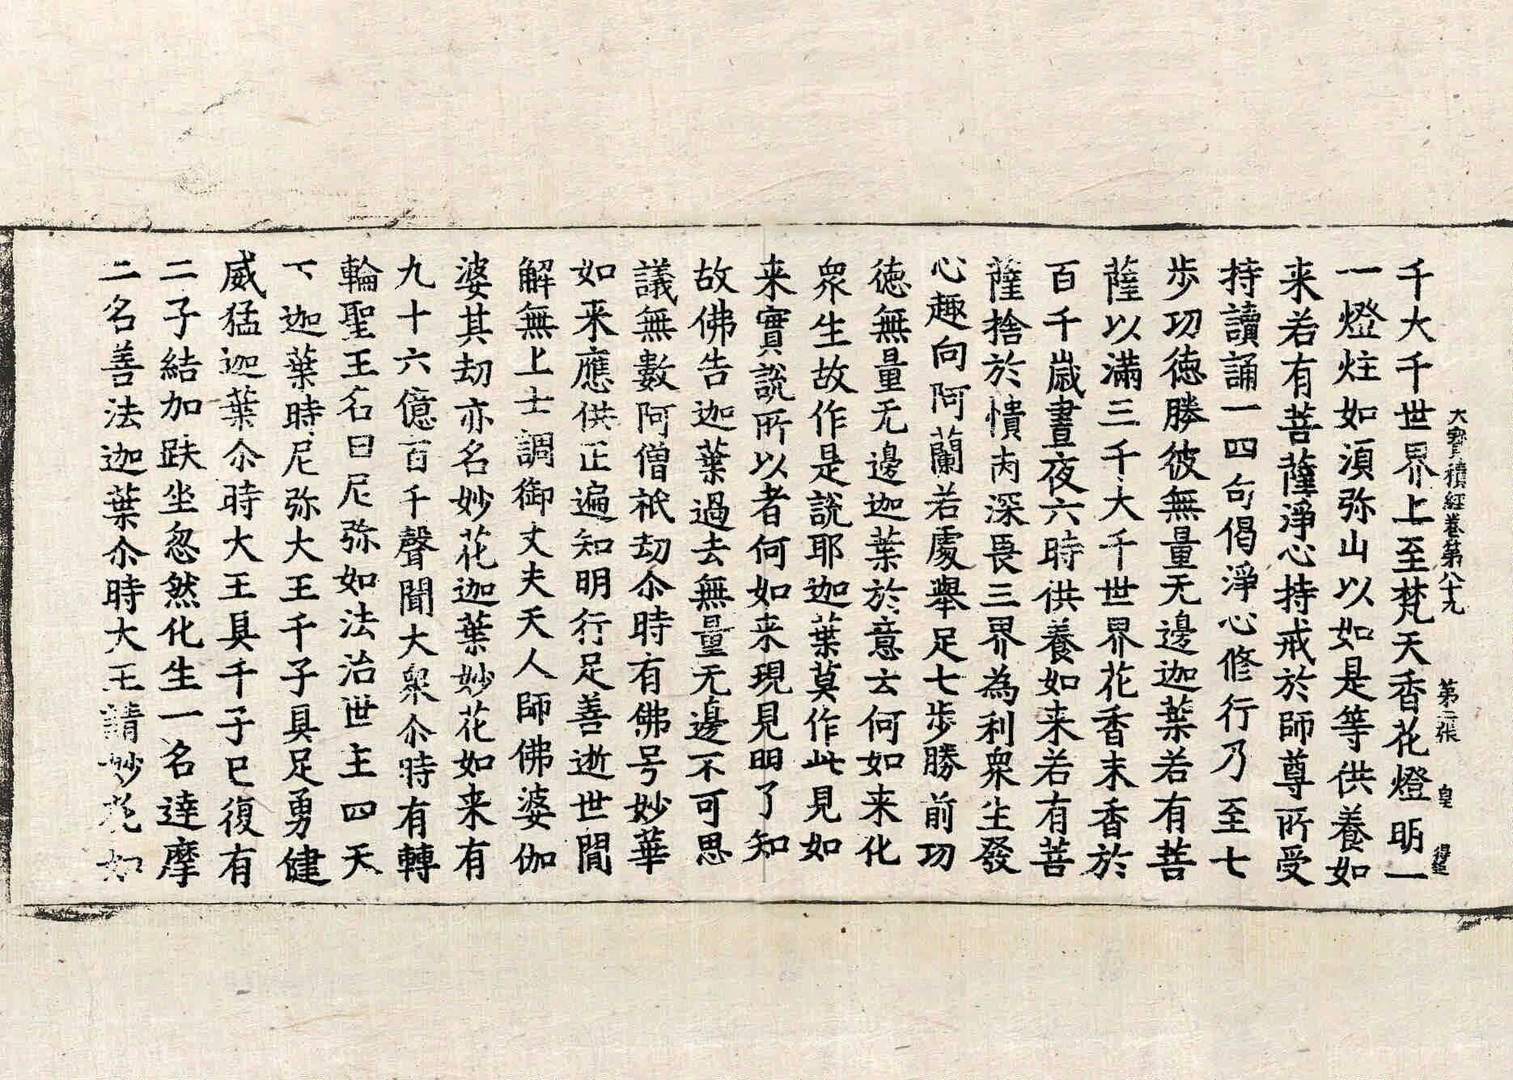 大寶積經卷第八十九 第二張 皇
千大千世界上至梵天香花燈明一
一燈炷如湏弥山以如是等供養如
来若有菩薩淨心持戒於師尊所受
持讀誦一四句偈淨心修行乃至七
步功徳勝彼無量无邊迦葉若有菩
薩以滿三千大千世界花香末香於
百千歲晝夜六時供養如来若有菩
薩捨於憒丙深畏三界為利衆生發
心趣向阿蘭若處舉足七步勝前功
徳無量无邊迦葉於意云何如来化
衆生故作是說耶迦葉莫作此見如
来實說所以者何如来現見明了知
故佛告迦葉過去無量无邊不可思
議無數阿僧祇劫尒時有佛号妙華
如来應供正遍知明行足善逝世閒
解無上士調御丈夫天人師佛婆伽
婆其劫亦名妙花迦葉妙花如来有
九十六億百千聲聞大衆尒時有轉
輪聖王名曰尼弥如法治世主四天
下迦葉時尼弥大王千子具足勇健
威猛迦葉尒時大王具千子已復有
二子結加趺坐忽然化生一名達摩
二名善法迦葉尒時大王請妙花如